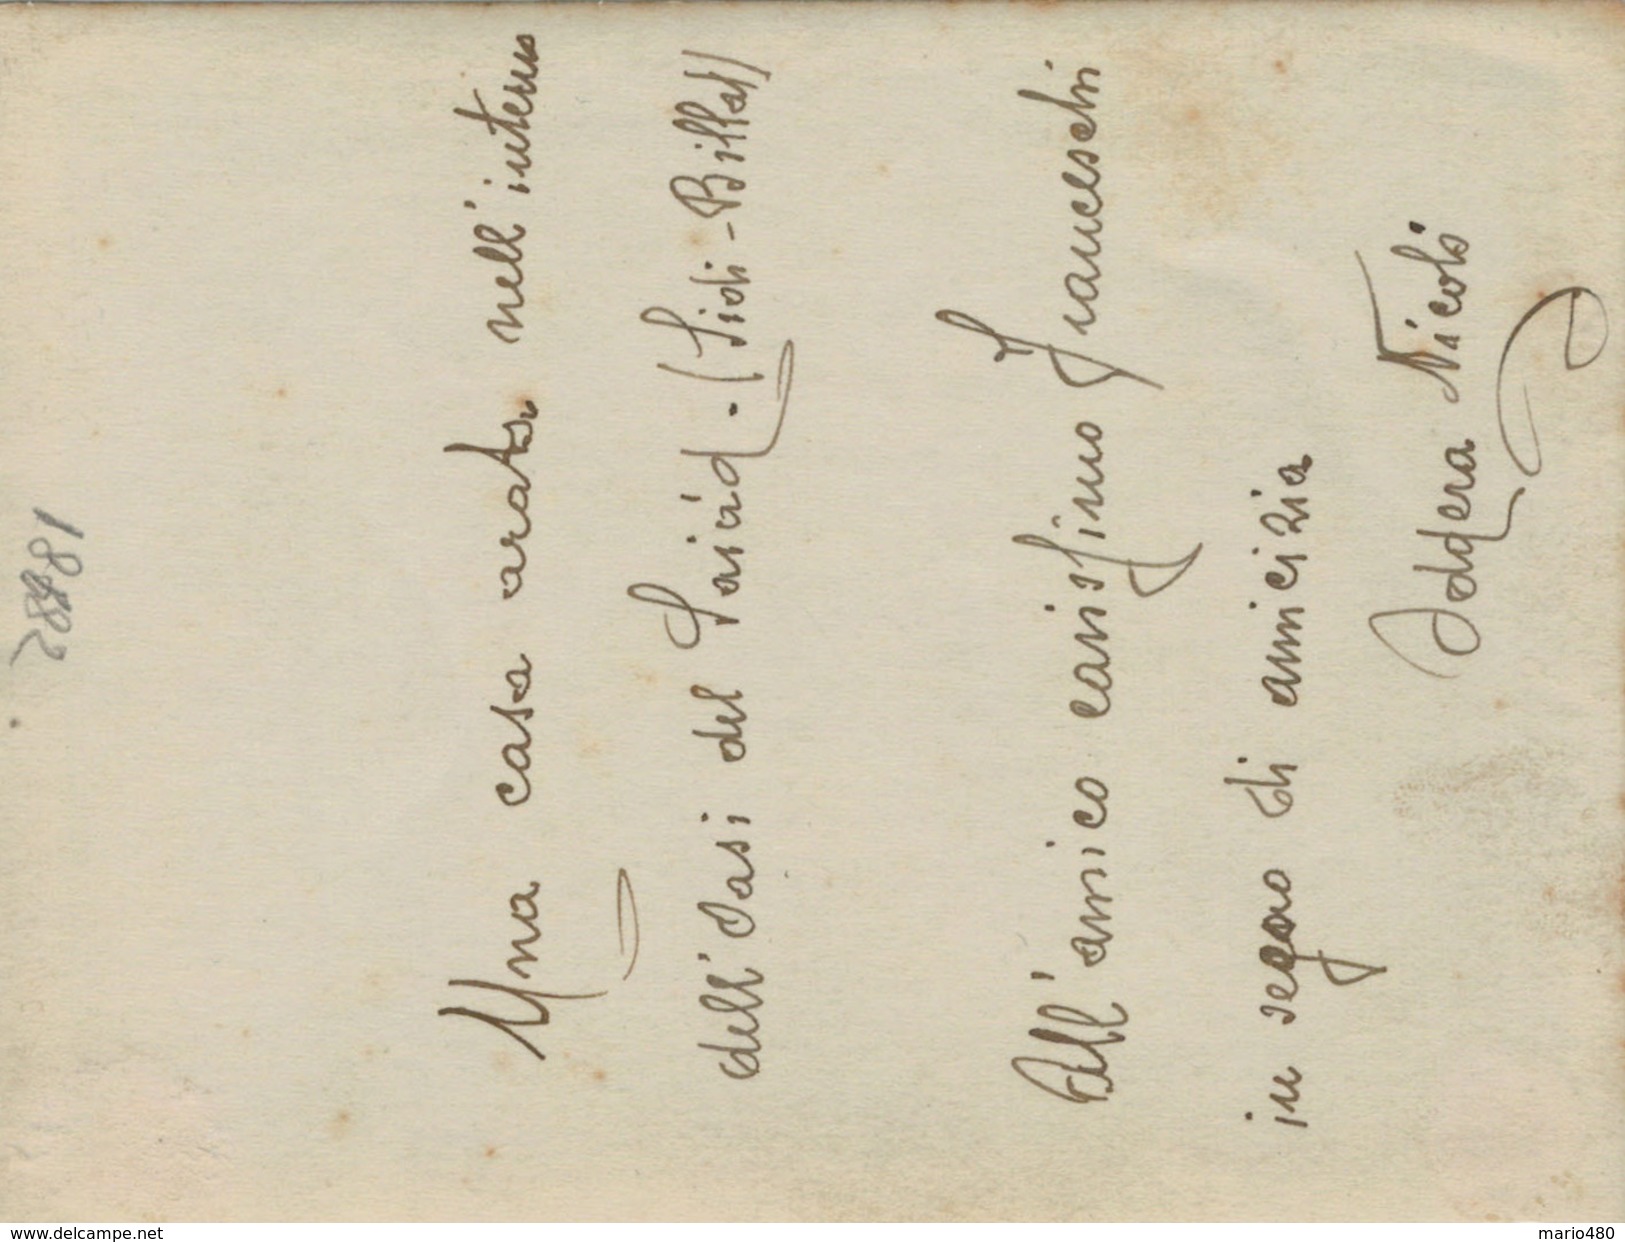 28881
Una casa araba nell'interno
dell'Oasi del Saiád. (Sidi-Billal)
All'amico carissimo Franceschi
in segno di amicizia
Addera Nicolò
www.delcampe.net
mario480